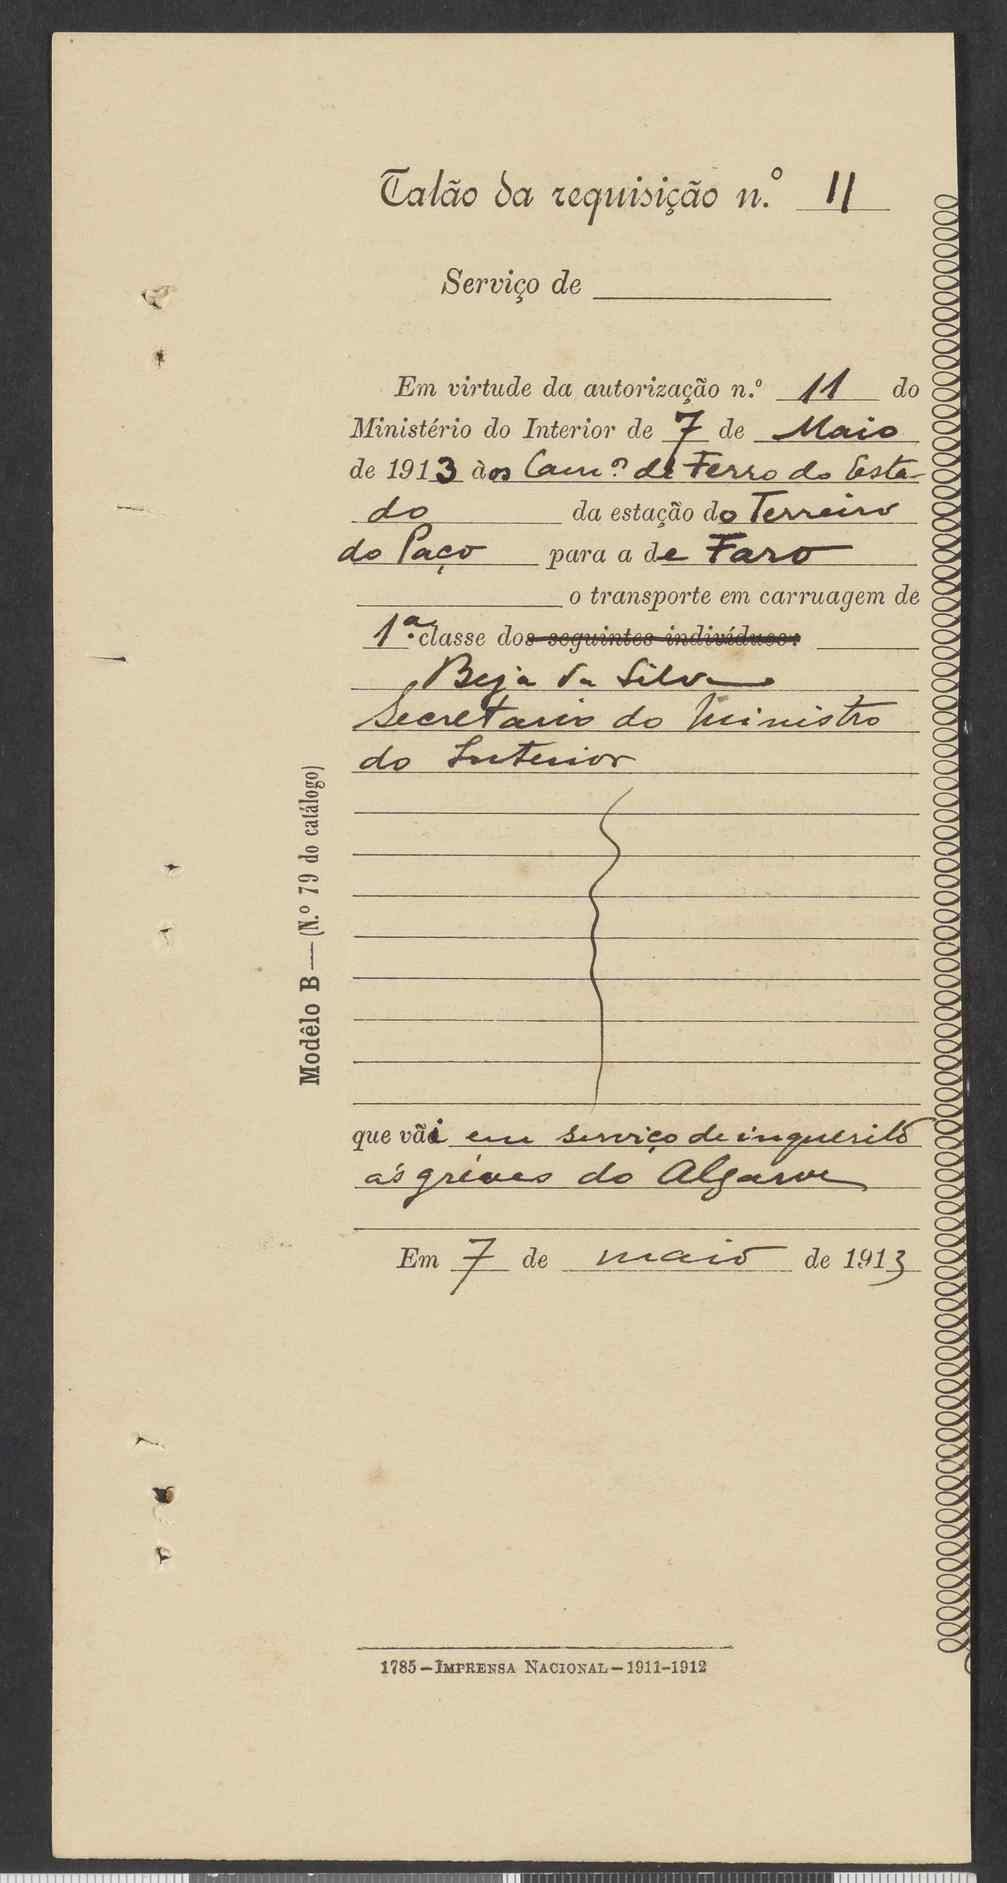 Talão da requisição n.º 11
Serviço de
Em virtude da autorização n.º 11 do
Ministério do Interior de 7 de Maio
de 1913 àos Cam.os de Ferro do Esta-
do da estação do Terreiro
do Paço para a de Faro
o transporte em carruagem de
1.ª classe dos seguintes indivíduos:
Beja da Silva
Secretario do Ministro
do Interior
que vãi em serviço de inquerito
ás gréves do Algarve
Em 7 de maio de 1913
Modêlo B — (N.º 79 do catálogo)
1785 – IMPRENSA NACIONAL – 1911-1912